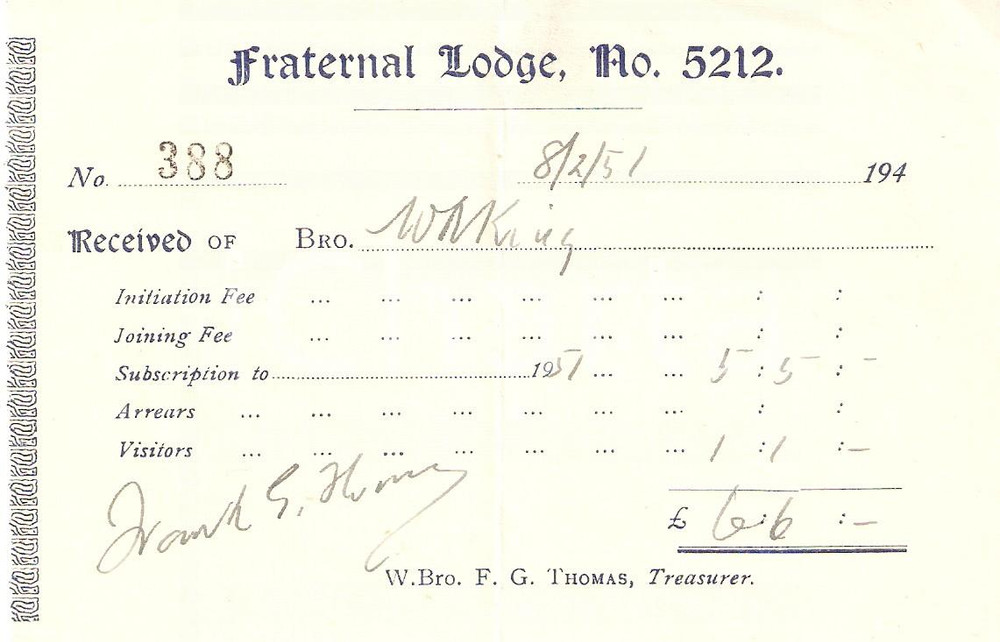 Fraternal Lodge, No. 5212.
No. 388 8/2/51 194
Received of Bro. W A King
Initiation Fee ... ... ... ... ... ... : :
Joining Fee ... ... ... ... ... : :
Subscription to 1951 ... ... 5 : 5 : –
Arrears ... ... ... ... ... ... ... : :
Visitors ... ... ... ... ... ... ... 1 : 1 : –
£ 6 : 6 : –
Frank G. Thomas
W.Bro. F. G. Thomas, Treasurer.